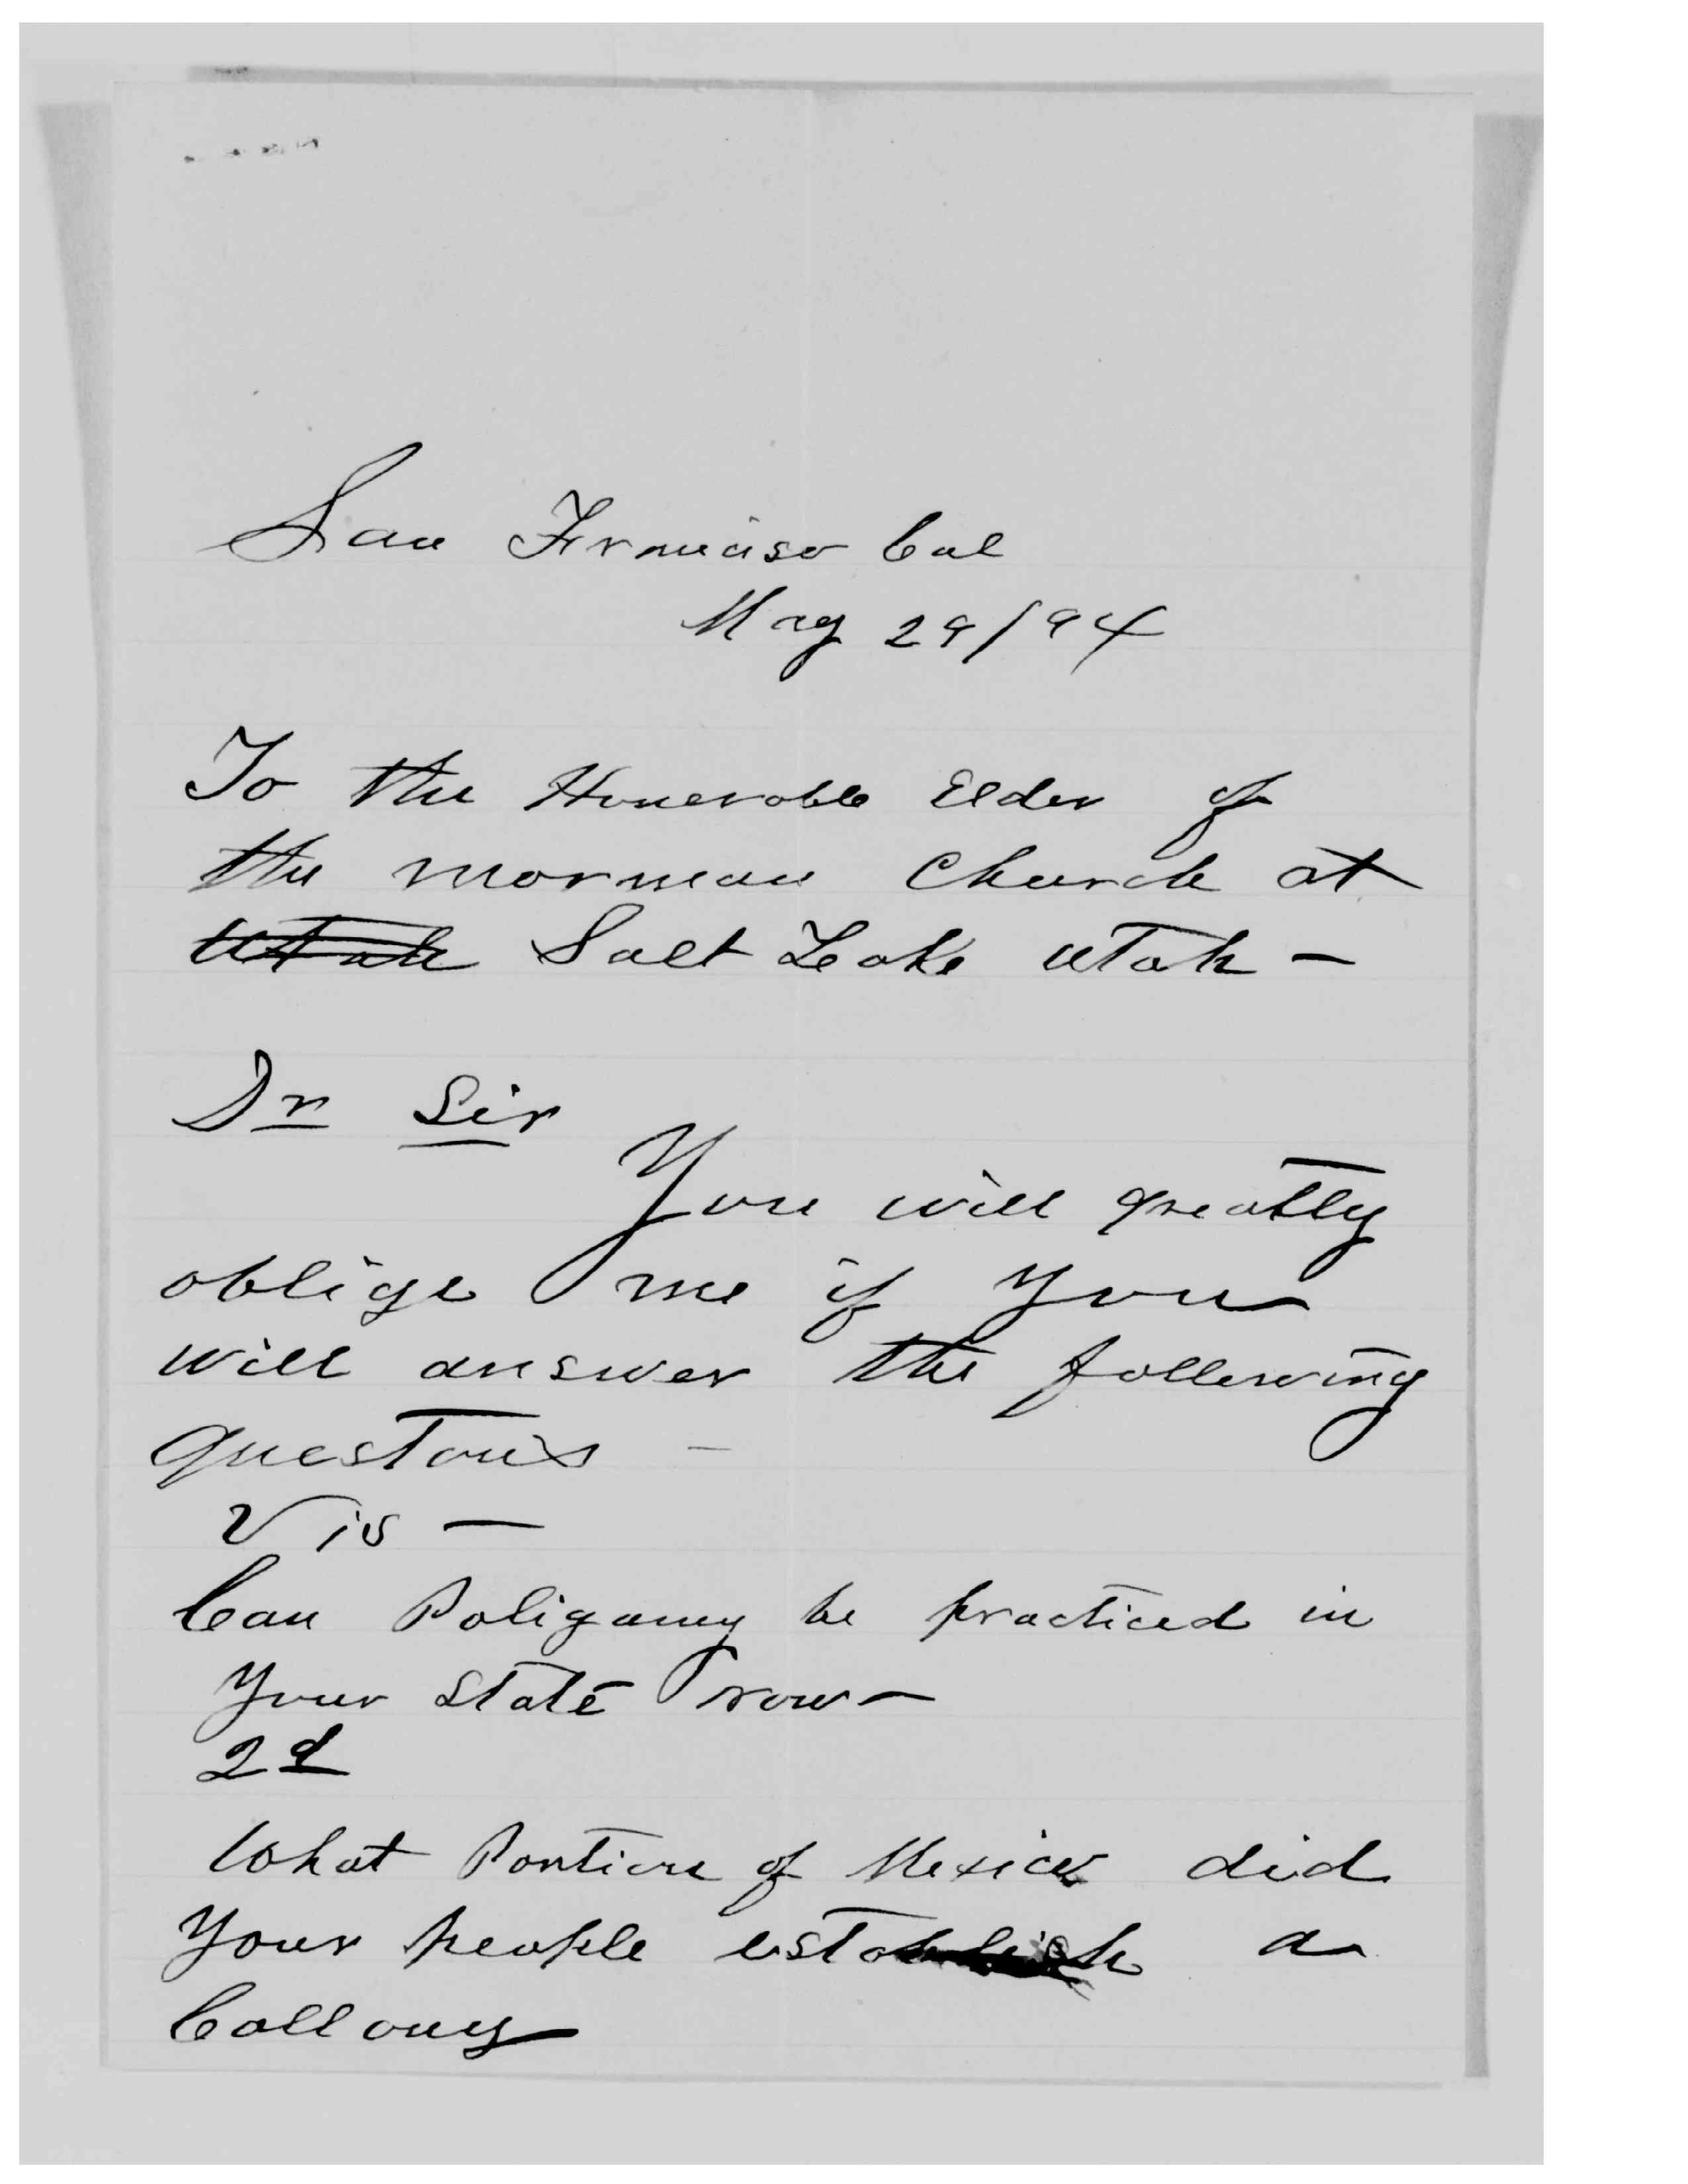 San Franciso Cal
May 29/94
To the Honerable Elder of
the Morman Church at
Utah Salt Lake Utah –
Dr Sir
You will greatly
oblige me if you
will answer the following
Questons –
Vis –
Can Poligamy be practiced in
your state now –
2d
What Portion of Mexico did
your people establish a
Collony